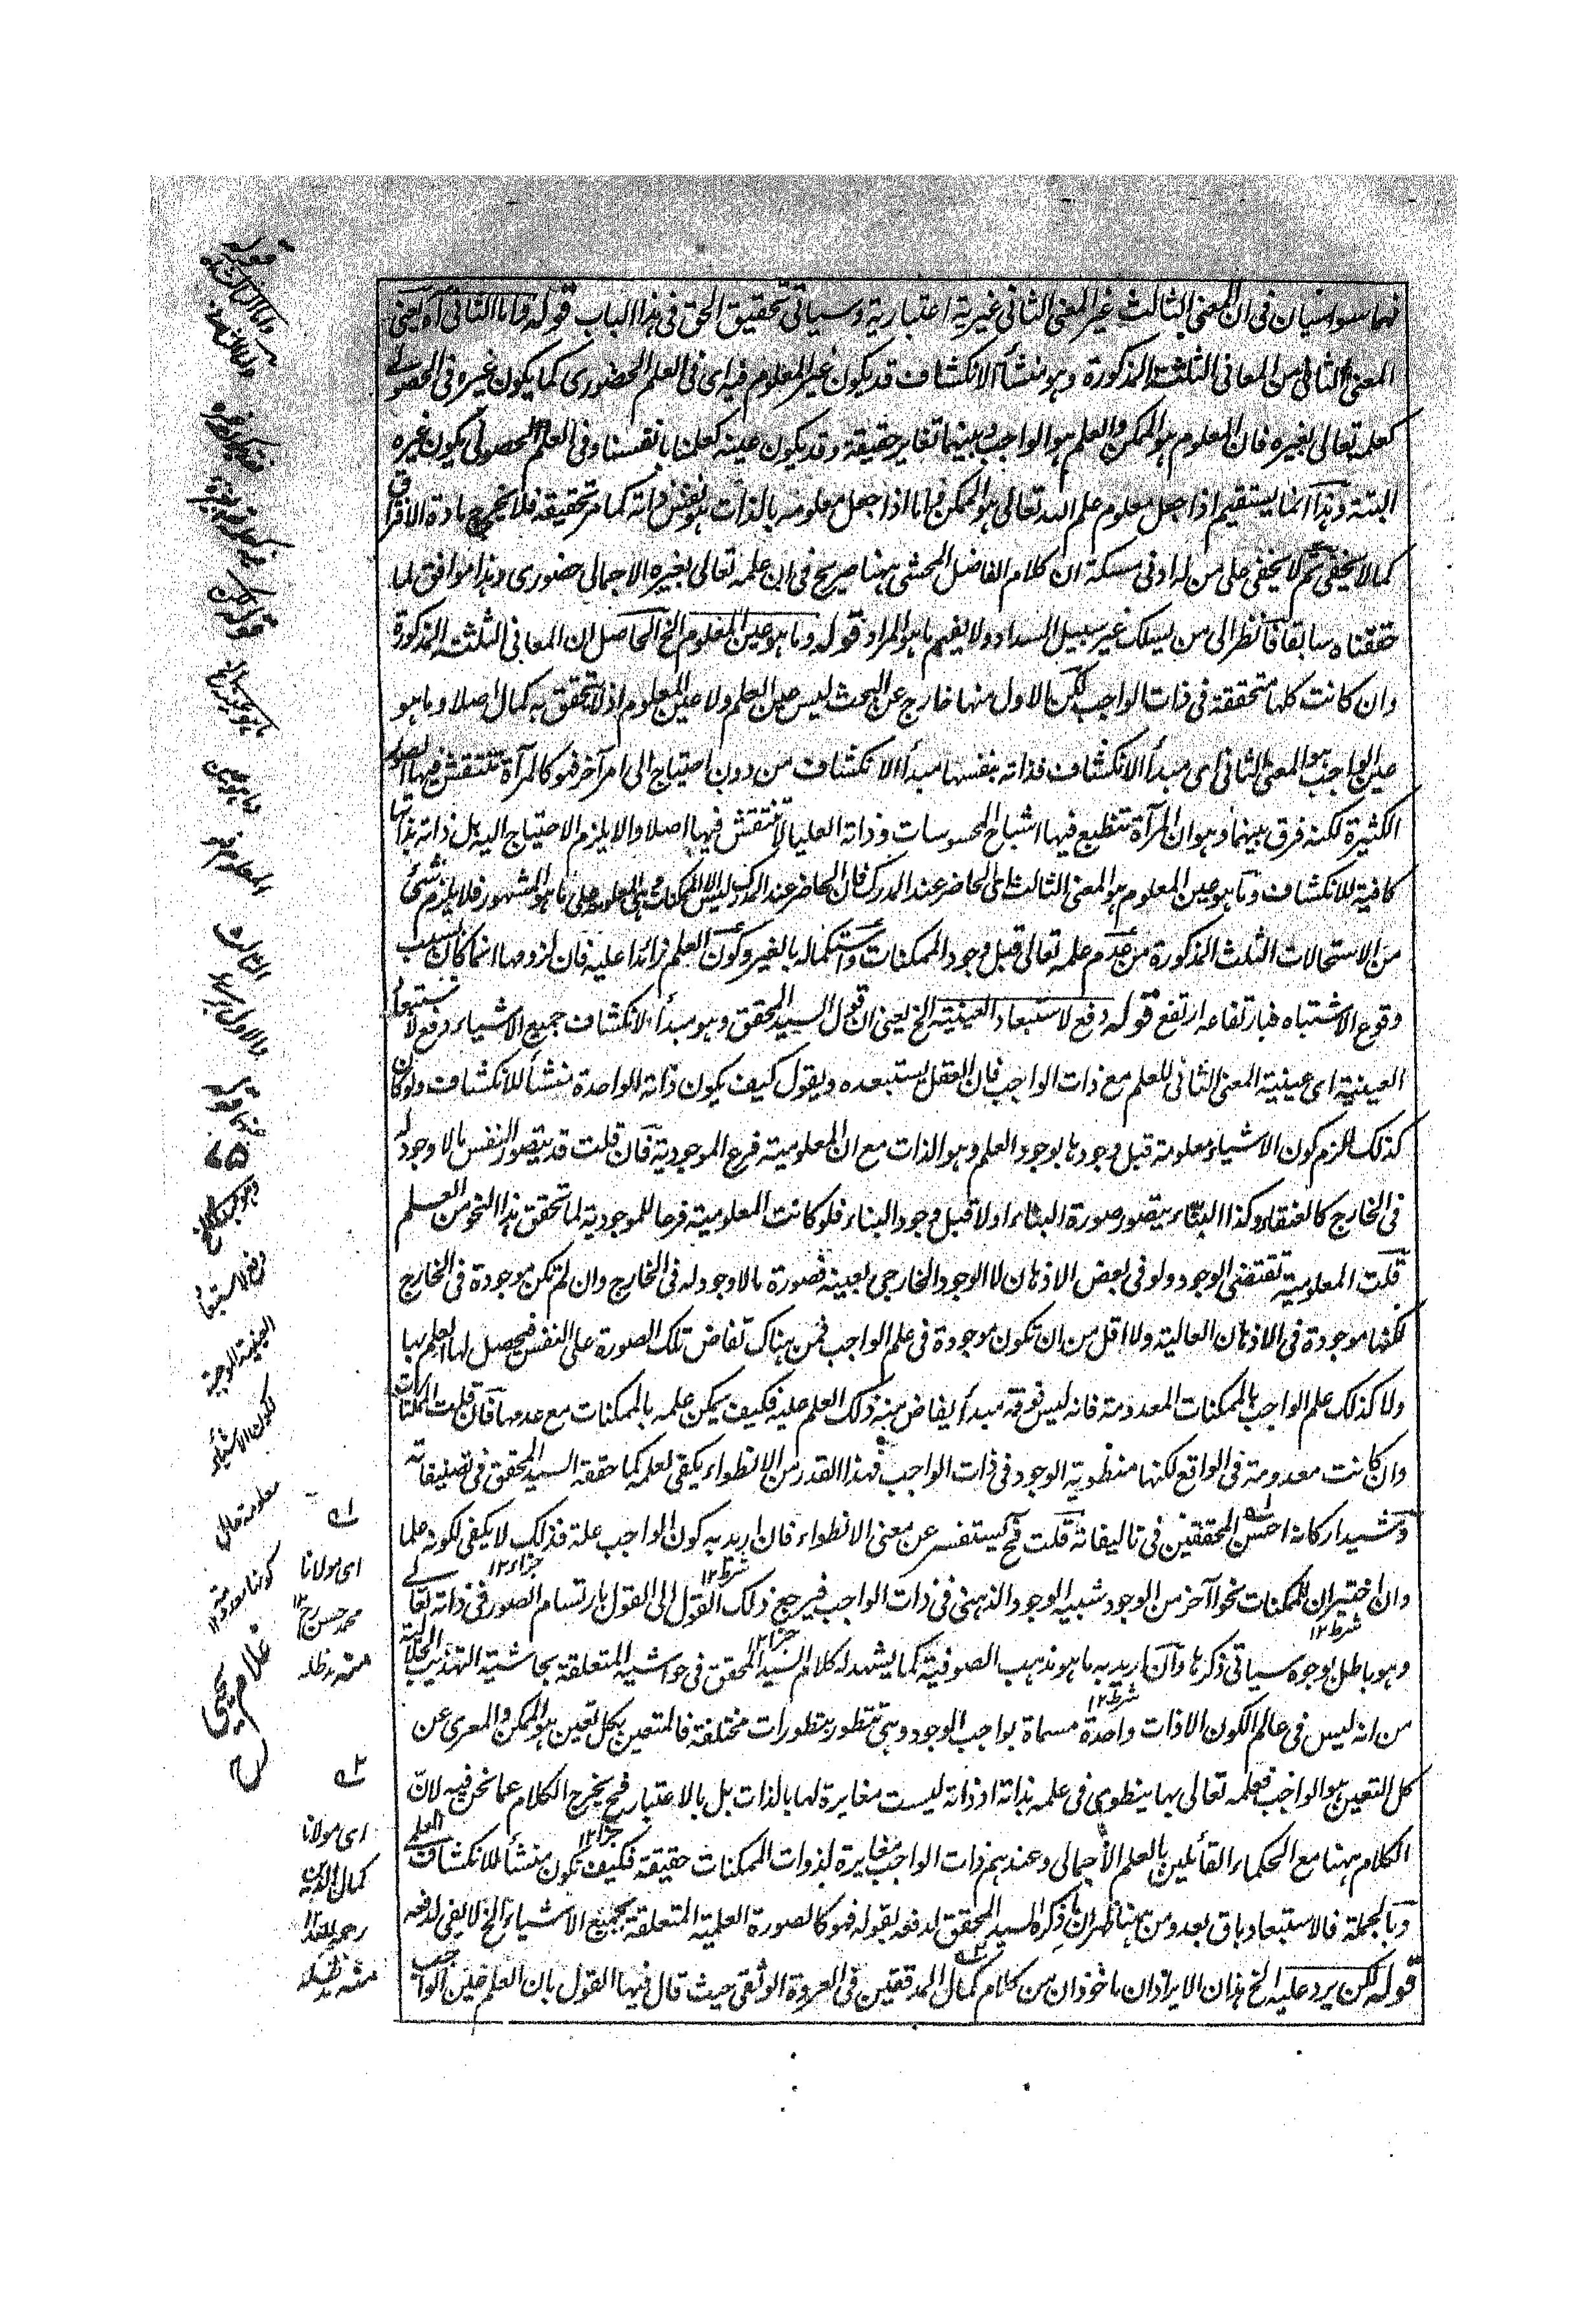 فهما سواسيان فى ان المعنى الثالث غير المعنى الثانى غيرية اعتبارية وسياتى تحقيق الحق فى هذا الباب قوله واما الثانى آه يعنى
المعنى الثانى من المعانى الثلثة المذكورة وهو منشأ الانكشاف قد يكون غير المعلوم فيه اى فى العلم الحضورى كما يكون غيره فى الحصولے
كعلمه تعالى بغيره فان المعلوم هو الممكن والعلم هو الواجب وبينهما تغاير حقيقة وقد يكون عينه كعلمنا بانفسنا وفى العلم الحصولى يكون غيره
البتة وهذا انما يستقيم اذا جعل معلوم علم الله تعالى هو الممكن فاما اذا جعل معلومه بالذات هو نفس ذاته كما مر تحقيقه فلا تخرج مادة الافتراق
كما لا يخفى ثم لا يخفى على من له ادنى مسكة ان كلام الفاضل المحشى ههنا صريح فى ان علمه تعالى بغيره الاجمالى حضورى وهذا موافق لما
حققناه سابقا فانظر الى من يسلك غير سبيل السداد ولا يفهم ما هو المراد قوله وما هو عين المعلوم الخ الحاصل ان المعانى الثلثة المذكورة
وان كانت كلها متحققة فى ذات الواجب لكن الاول منها خارج عن البحث ليس عين العلم ولا عين المعلوم اذ لا يتحقق به كمال اصلا وما هو
عين الواجب هو المعنى الثانى اى مبدأ الانكشاف فذاته بنفسها مبدأ الانكشاف من دون احتياج الى امر آخر فهو كالمرآة تنتقش فيها الصور
الكثيرة لكنه فرق بينهما وهو ان المرآة تنطبع فيها اشباح المحسوسات وذاته العليا لا تنتقش فيها اصلا والا يلزم الاحتياج اليه بل ذاته بذاتها
كافية للانكشاف وما هو عين المعلوم هو المعنى الثالث اى الحاضر عند المدرك فان الحاضر عند المدرك ليس الا الممكنات وهى المعلومة على ما هو المشهور فلا يلزم شئ
من الاستحالات الثلث المذكورة من عدم علمه تعالى قبل وجود الممكنات واستكماله بالغير وكون العلم زائدا عليه فان لزومها انما كان بسبب
وقوع الاشتباه فبارتفاعه ارتفع قوله دفع لاستبعاد العينية الخ يعنى ان قول السيد المحقق وهو مبدأ الانكشاف جميع الاشياء دفع لاستبعاد
العينية اى عينية المعنى الثانى للعلم مع ذات الواجب فان العقل يستبعده ويقول كيف يكون ذاته الواحدة منشأ للانكشاف ولو كان
كذلك للزم كون الاشياء معلومة قبل وجودها بوجود العلم وهو الذات مع ان المعلومية فرع الموجودية فان قلت قد يتصور النفس ما لا وجود له
فى الخارج كالعنقاء وكذا البناء يتصور صورة البناء اولا قبل وجود البناء فلو كانت المعلومية فرعا للموجودية لما تحقق هذا النحو من العلم
قلت المعلومية تقتضى الوجود ولو فى بعض الاذهان لا الوجود الخارجى بعينه فصورة ما لا وجود له فى الخارج وان لم تكن موجودة فى الخارج
لكنها موجودة فى الاذهان العالية ولا اقل من ان تكون موجودة فى علم الواجب فمن هناك تفاض تلك الصورة على النفس فيحصل لها العلم بها
ولا كذلك علم الواجب بالممكنات المعدومة فانه ليس فوقه مبدأ يفاض منه ذلك العلم عليه فكيف يمكن علمه بالممكنات مع عدمها فان قلت الممكنات
وان كانت معدومة فى الواقع لكنها منطوية الوجود فى ذات الواجب فهذا القدر من الانطواء يكفى لعلمه كما حققه السيد المحقق فى تصنيفاته
وشيد اركانه احسن المحققين فى تاليفاته قلت فح يستفسر عن معنى الانطواء فان اريد به كون الواجب علة فذلك لا يكفى لكونه علما
وان اختير ان للممكنات نحوا آخر من الوجود شبيه الوجود الذهنى فى ذات الواجب فيرجع ذلك القول الى القول بارتسام الصور فى ذاته تعالے
وهو باطل بوجوه سياتى ذكرها وان اريد به ما هو مذهب الصوفية كما يشهد له كلام السيد المحقق فى حواشيه المتعلقة بحاشية التهذيب الجلالية
من انه ليس فى عالم الكون الا ذات واحدة مسماة بواجب الوجود وهى تتطور بتطورات مختلفة فالمتعين بكل تعين هو الممكن والمعرى عن
كل التعين هو الواجب فعلمه تعالى بها ينطوى فى علمه بذاته اذ ذاته ليست مغايرة لها بالذات بل بالاعتبار فح يخرج الكلام عما نحن فيه لان
الكلام ههنا مع الحكماء القائلين بالعلم الاجمالى وعندهم ذات الواجب مغايرة لذوات الممكنات حقيقة فكيف تكون منشأ للانكشاف العلمے
وبالجملة فالاستبعاد باق بعد ومن ههنا ظهر ان ما ذكره السيد المحقق لدفعه بقوله فهو كالصورة العلمية المتعلقة بجميع الاشياء الخ لا يفى لدفعه
قوله لكن يرد عليه الخ هذان الايرادان ماخوذان من كلام كمال المدققين فى العروة الوثقى حيث قال فيها القول بان العلم عين الواجب
ما هو عين
المعلوم هو
الثالث
والاول
قوله
دفع لاستبعاد
العينية
لكون الاشياء
معلومة حال
كونها معدومة ١٢
غلام يحيى
اى مولانا
محمد حسن رح
منه مد ظله
اى مولانا
كمال الدين
رحمه الله ١٢
منه مد ظله